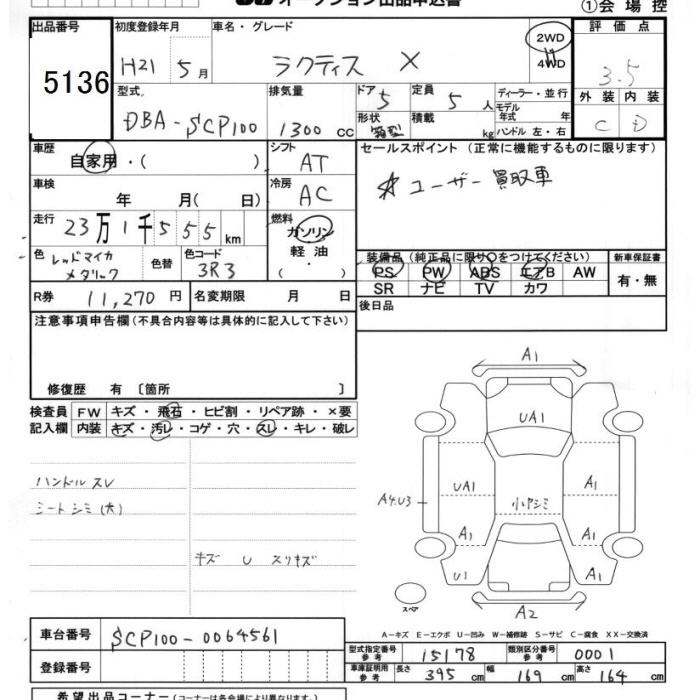 オークション出品申込書
①会場控
出品番号
5136
初度登録年月
H21 5月
車名・グレード
ラクティス X
2WD
4WD
評価点
3.5
外装 内装
C D
型式
DBA-SCP100
排気量
1300 cc
ドア
5
定員
5 人
ディーラー・並行
モデル年式 年
形状
箱型
積載 kg
ハンドル 左・右
車歴
自家用・( )
シフト
AT
車検
年 月( 日)
冷房
AC
走行
23万1千555 km
燃料
ガソリン・軽油・( )
色
レッドマイカメタリック
色替
色コード
3R3
R券 11,270 円
名変期限 月 日
セールスポイント(正常に機能するものに限ります)
☆ユーザー買取車
装備品(純正品に限り○をつけてください)
PS PW ABS エアB AW
SR ナビ TV カワ
新車保証書
有・無
後日品
注意事項申告欄(不具合内容等は具体的に記入して下さい)
修復歴 有 〔箇所 〕
検査員記入欄
FW キズ・飛石・ヒビ割・リペア跡・×要
内装 キズ・汚レ・コゲ・穴・スレ・キレ・破レ
ハンドル スレ
シート シミ(大)
キズ U スリキズ
A1
UA1
UA1
A1
A4.U3
小ヤシミ
A1
A1
U1
A1
A2
スペア
A―キズ E―エクボ U―凹み W―補修跡 S―サビ C―腐食 XX―交換済
車台番号 SCP100-0064561
登録番号
型式指定番号 参考 15178
類別区分番号 参考 0001
車庫証明用 参考 長さ 395 cm 幅 169 cm 高さ 164 cm
希望出品コーナー(コーナーは各会場により異なります。)